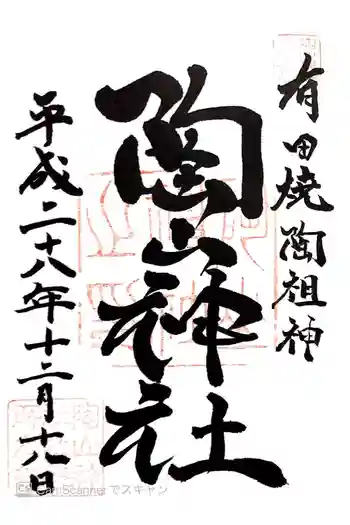 有田焼陶祖神
陶山神社
平成二十八年十二月十八日
CamScanner でスキャン